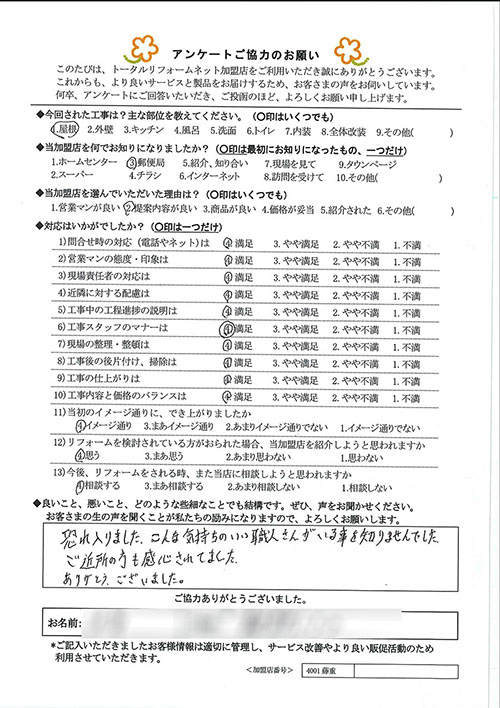 アンケートご協力のお願い
このたびは、トータルリフォームネット加盟店をご利用いただき誠にありがとうございます。
これからも、より良いサービスと製品をお届けするため、お客さまの声をお伺いしています。
何卒、アンケートにご回答いただいき、ご投函のほど、よろしくお願い申し上げます。
◆今回された工事は?主な部位を教えてください。(〇印はいくつでも)
1.屋根 2.外壁 3.キッチン 4.風呂 5.洗面 6.トイレ 7.内装 8.全体改装 9.その他( )
◆当加盟店を何でお知りになりましたか?(〇印は最初にお知りになったもの、一つだけ)
1.ホームセンター 3.郵便局 5.紹介、知り合い 7.現場を見て 9.タウンページ
2.スーパー 4.チラシ 6.インターネット 8.訪問を受けて 10.その他( )
◆当加盟店を選んでいただいた理由は?(〇印はいくつでも)
1.営業マンが良い 2.提案内容が良い 3.商品が良い 4.価格が妥当 5.紹介された 6.その他( )
◆対応はいかがでしたか?(〇印は一つだけ)
1)問合せ時の対応(電話やネット)は 4.満足 3.やや満足 2.やや不満 1.不満
2)営業マンの態度・印象は 4.満足 3.やや満足 2.やや不満 1.不満
3)現場責任者の対応は 4.満足 3.やや満足 2.やや不満 1.不満
4)近隣に対する配慮は 4.満足 3.やや満足 2.やや不満 1.不満
5)工事中の工程進捗の説明は 4.満足 3.やや満足 2.やや不満 1.不満
6)工事スタッフのマナーは 4.満足 3.やや満足 2.やや不満 1.不満
7)現場の整理・整頓は 4.満足 3.やや満足 2.やや不満 1.不満
8)工事後の後片付け、掃除は 4.満足 3.やや満足 2.やや不満 1.不満
9)工事の仕上がりは 4.満足 3.やや満足 2.やや不満 1.不満
10)工事内容と価格のバランスは 4.満足 3.やや満足 2.やや不満 1.不満
11)当初のイメージ通りに、でき上がりましたか
4.イメージ通り 3.まあイメージ通り 2.あまりイメージ通りでない 1.イメージ通りでない
12)リフォームを検討されている方がおられた場合、当加盟店を紹介しようと思われますか
4.思う 3.まあ思う 2.あまり思わない 1.思わない
13)今後、リフォームをされる時、また当店に相談しようと思われますか
4.相談する 3.まあ相談する 2.あまり相談しない 1.相談しない
◆良いこと、悪いこと、どのような些細なことでも結構です。ぜひ、声をお聞かせください。
お客さまの生の声を聞くことが私たちの励みになりますので、よろしくお願いします。
恐れ入りました。こんな気持ちのいい職人さんがいる事を知りませんでした。
ご近所の方も感心されてました。
ありがとうございました。
ご協力ありがとうございました。
お名前:
*ご記入いただきましたお客様情報は適切に管理し、サービス改善やより良い販促活動のため
利用させていただきます。
<加盟店番号> 4001藤重